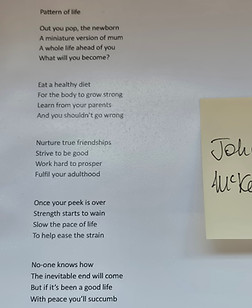 Pattern of life
Out you pop, the newborn
A miniature version of mum
A whole life ahead of you
What will you become?
Eat a healthy diet
For the body to grow strong
Learn from your parents
And you shouldn't go wrong
Nurture true friendships
Strive to be good
Work hard to prosper
Fulfil your adulthood
Once your peek is over
Strength starts to wain
Slow the pace of life
To help ease the strain
No-one knows how
The inevitable end will come
But if it's been a good life
With peace you'll succumb